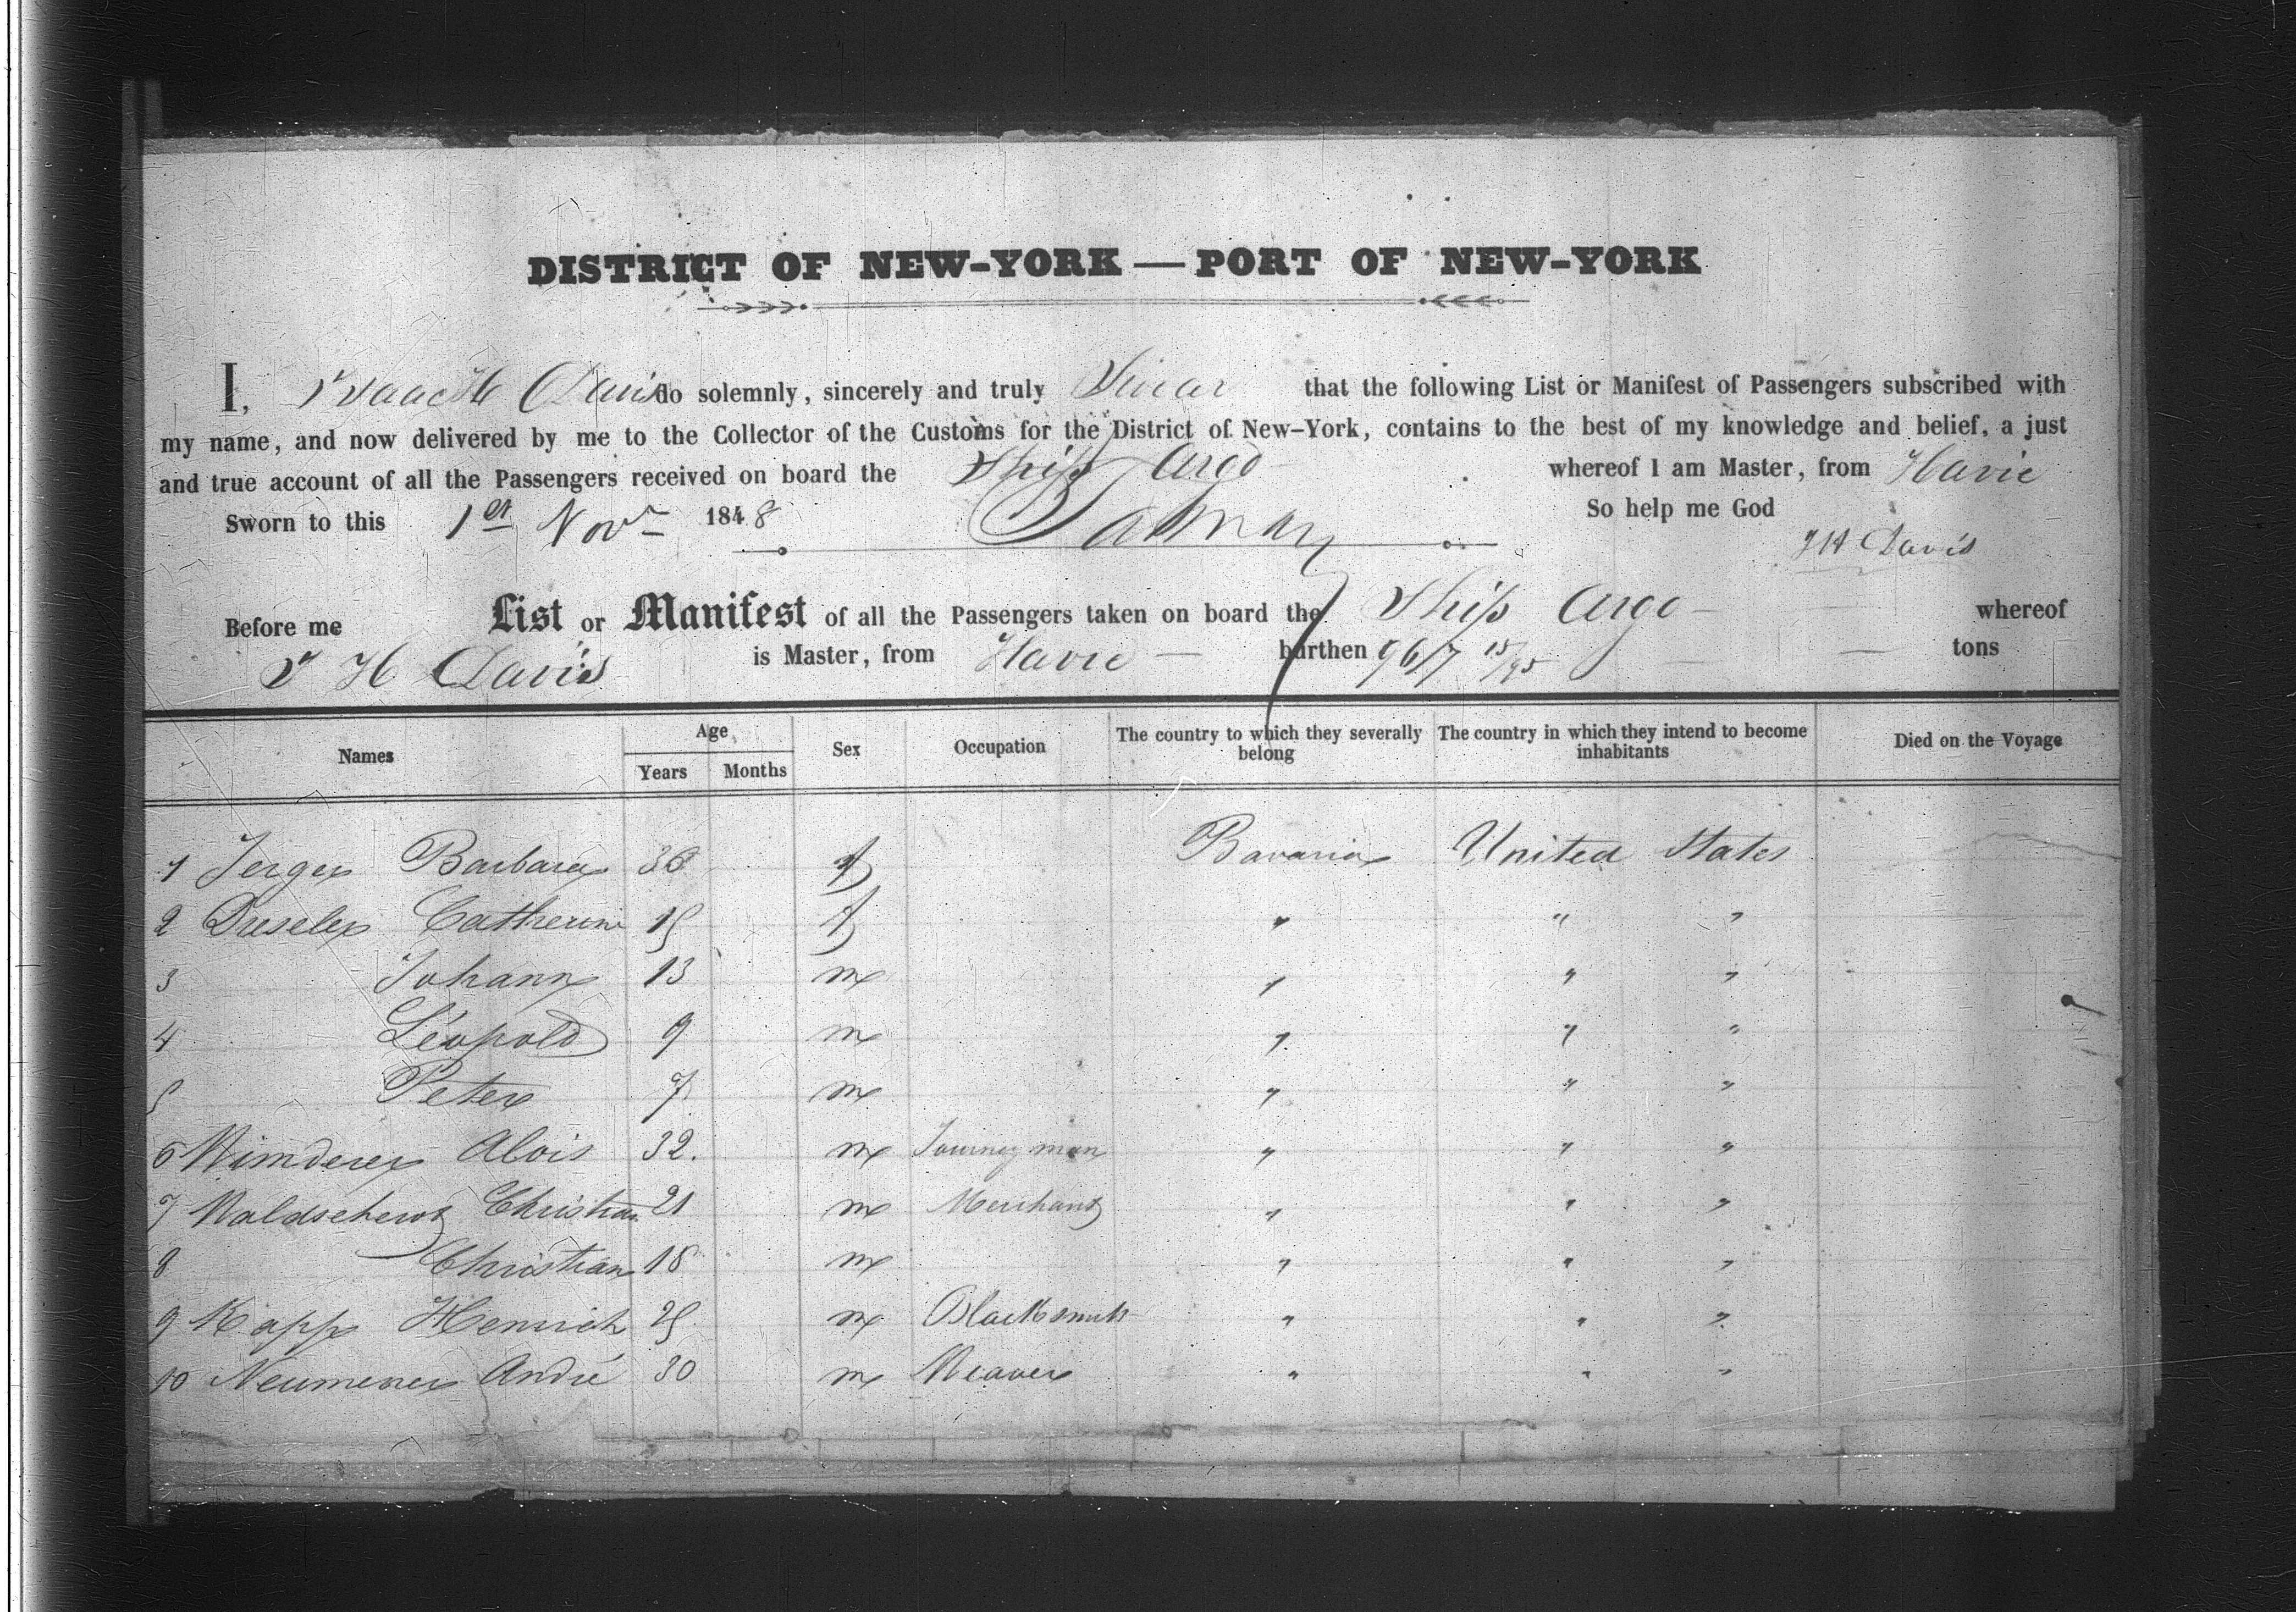 DISTRICT OF NEW-YORK — PORT OF NEW-YORK
I, Isaac H Davis do solemnly, sincerely and truly Swear that the following List or Manifest of Passengers subscribed with
my name, and now delivered by me to the Collector of the Customs for the District of New-York, contains to the best of my knowledge and belief, a just
and true account of all the Passengers received on board the Ship Argo whereof I am Master, from Havre
Sworn to this 1st Novr 1848 So help me God
I H Davis
Before me List or Manifest of all the Passengers taken on board the Ship Argo whereof
I H Davis is Master, from Havre burthen 967 15/95 tons
Names Age Years Months Sex Occupation The country to which they severally belong The country in which they intend to become inhabitants Died on the Voyage
1 Jerger Barbara 36 f Bavaria United States
2 Dreseler Catherine 15 f " " "
3 Johann 13 m " " "
4 Léopold 9 m " " "
5 Peter 7 m " " "
6 Wimderer Alois 32. m Journeyman " " "
7 Christian 21 m Merchant " " "
8 Christian 18 m " " "
9 Kapp Henrich 25 m Blacksmith " " "
10 André 30 m Weaver " " "